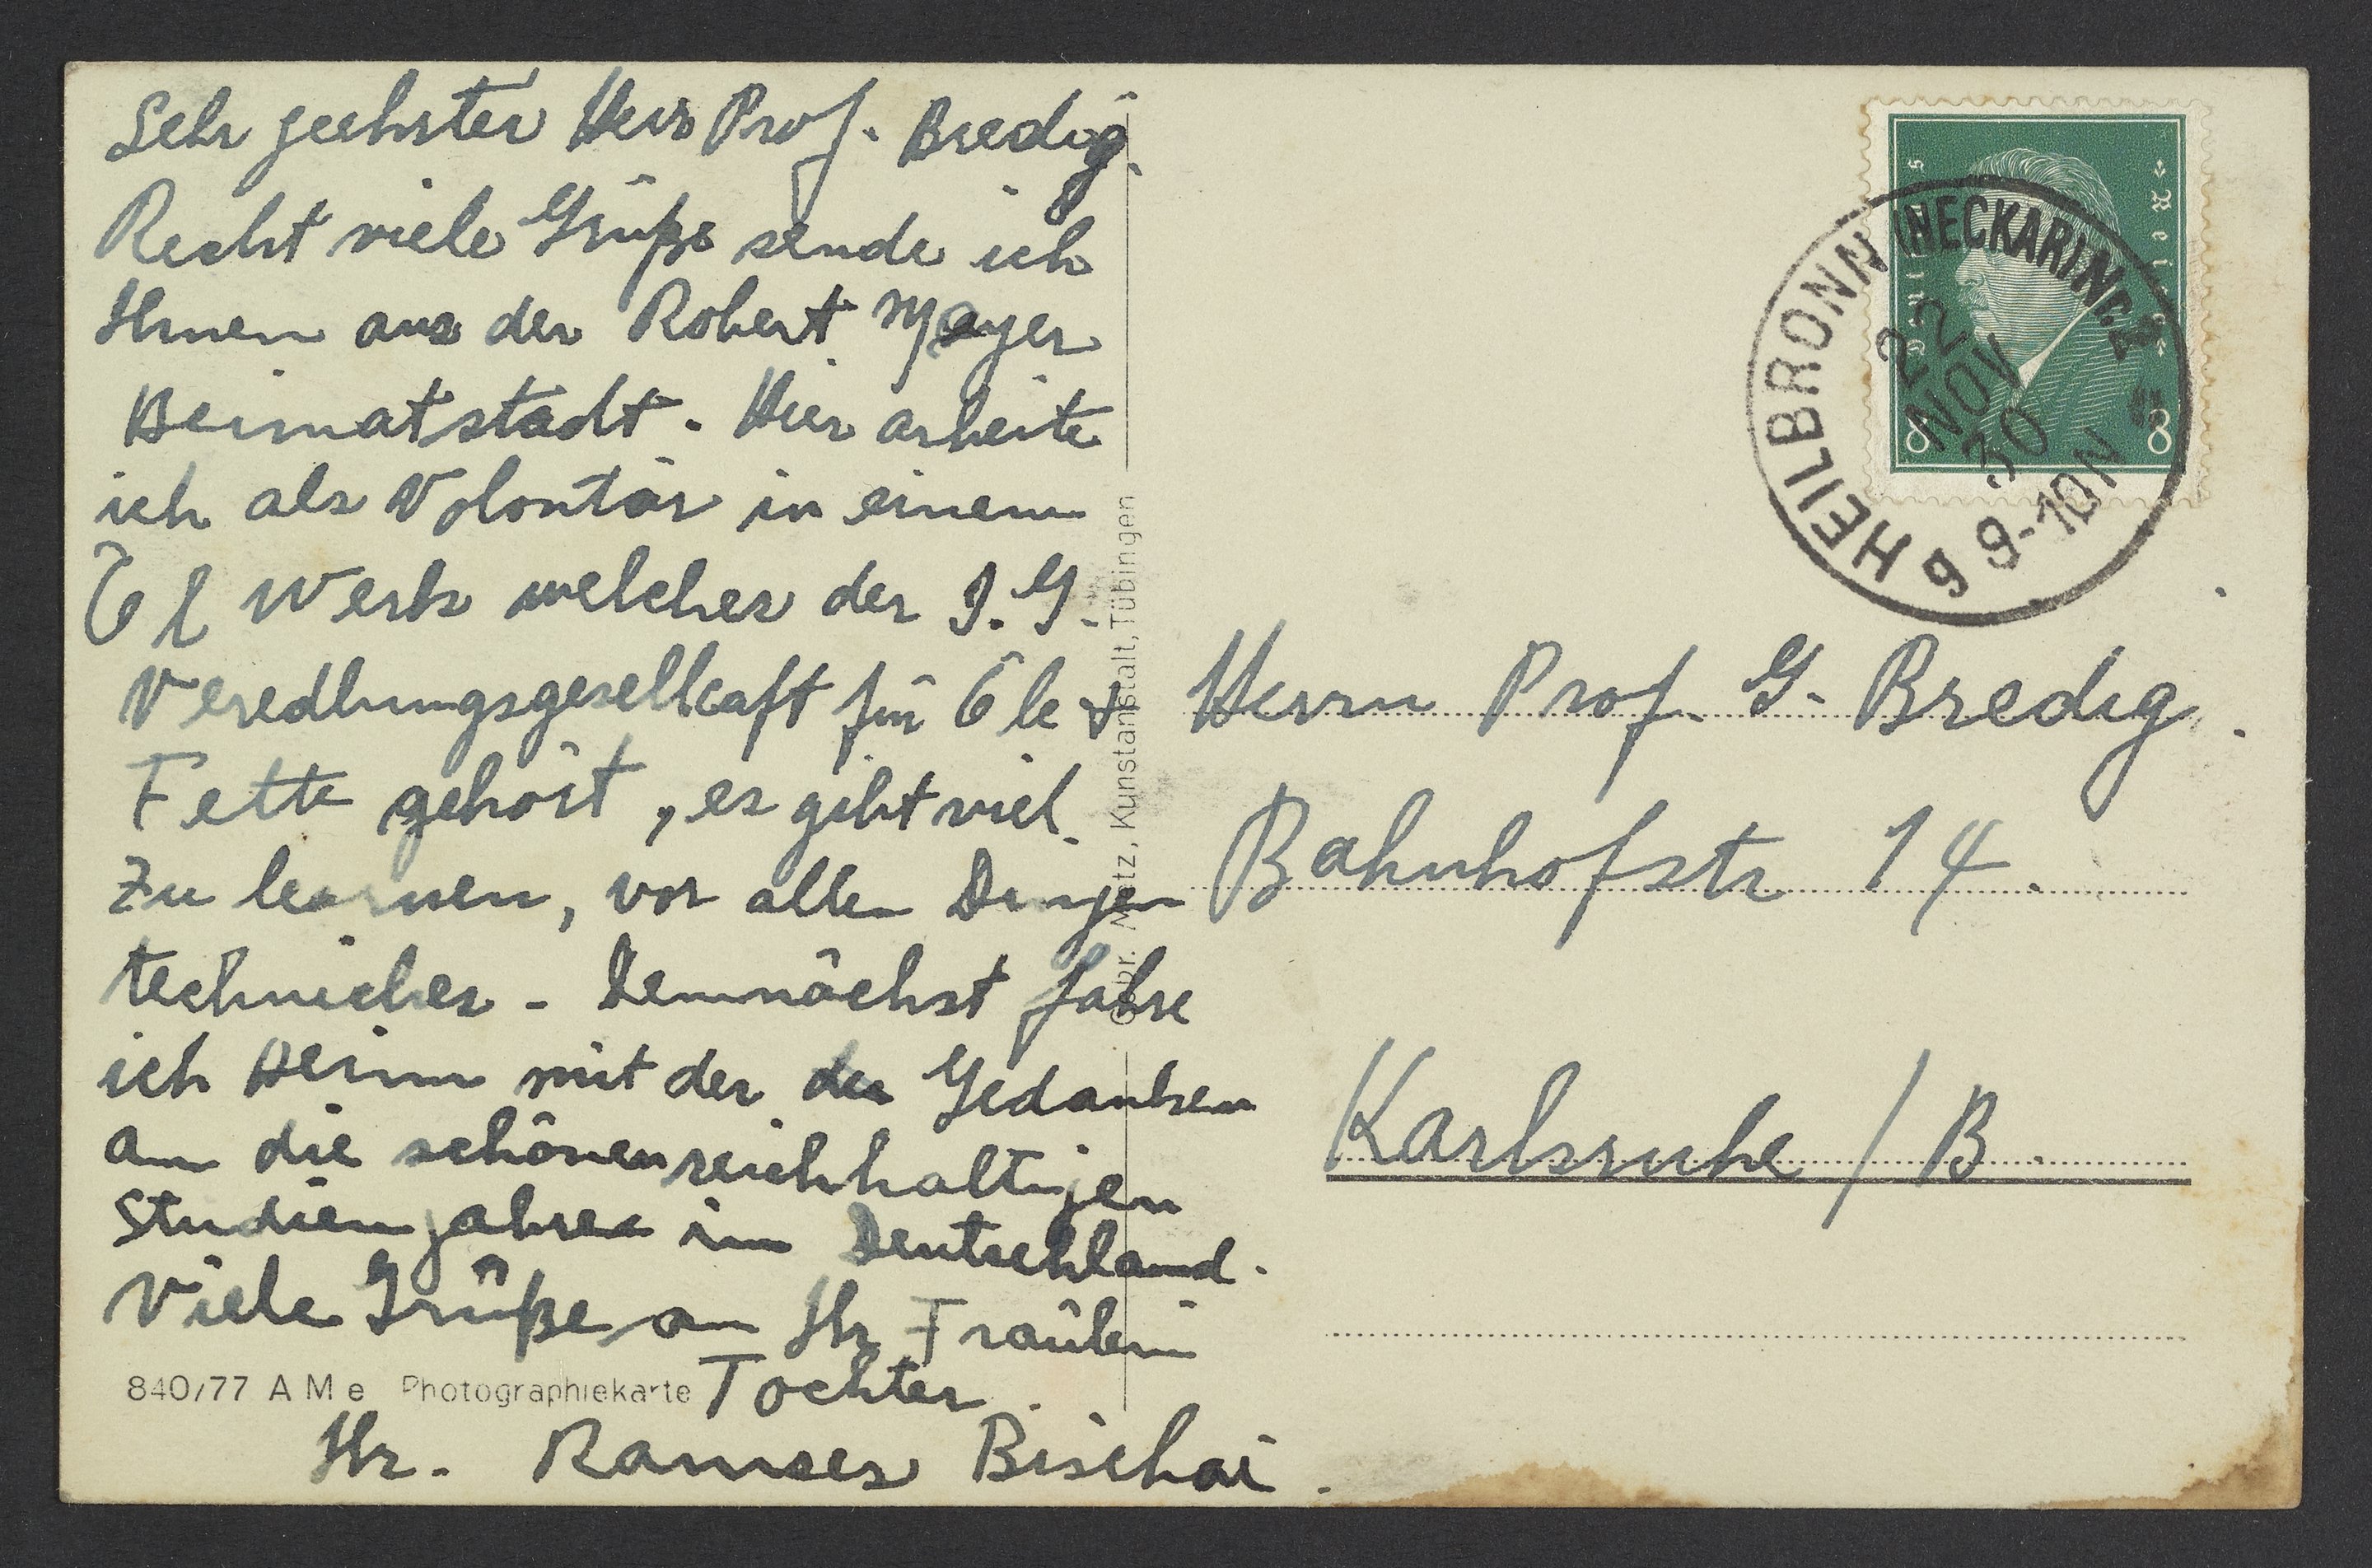 Sehr geehrter Herr Prof. Bredig.
Recht viele Grüße sende ich
Ihnen aus der Robert Mayer
Heimatstadt. Hier arbeite
ich als Volontär in einem
Öl Werk welches der I.G.
Veredlungsgesellcaft für Öle &
Fette gehört, es gibt viel
zu lernen, vor allen Dingen
technisches - Demnächst fahre
ich Heim mit der Gedanken
an die schönen reichhaltigen
Studienjahres in Deutschland.
Viele Grüße an Ihr Fräulein
Tochter
Ihr. Ramses Bischai.
840/77 A M e Photographiekarte
Gebr. Metz, Kunstanstalt, Tübingen
HEILBRONN (NECKAR) NR. 2
22
NOV
30
9-10 N
g
8 8
Herrn Prof. G. Bredig.
Bahnhofstr 14.
Karlsruhe / B.